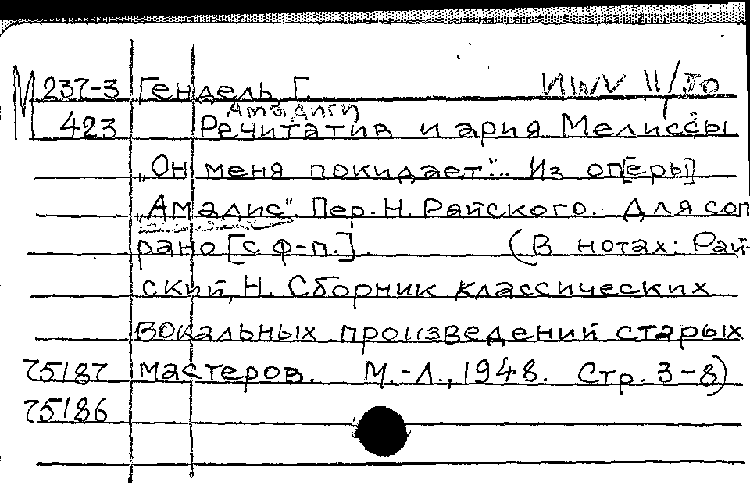 М 237-3 Гендель Г. HWV 11/50
423 Речитатив и ария Мелиссы
„Он меня покидает“... Из оп[еры]
„Амадис“. Пер. Н. Райского. Для соп
рано [с ф-п.]. (В нотах: Рай
ский, Н. Сборник классических
вокальных произведений старых
75187 мастеров. М.-Л., 1948. Стр. 3-8)
75186